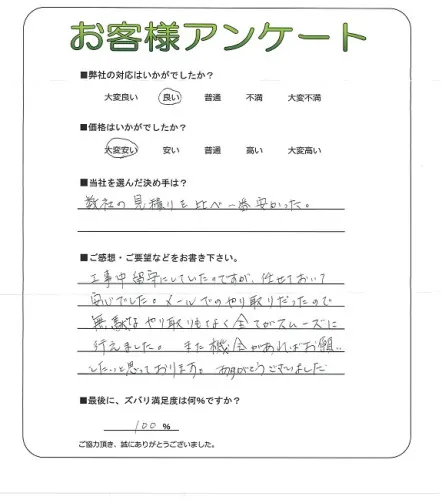 お客様アンケート
■弊社の対応はいかがでしたか?
大変良い 良い 普通 不満 大変不満
■価格はいかがでしたか?
大変安い 安い 普通 高い 大変高い
■当社を選んだ決め手は?
数社の見積りを比べ一番安かった。
■ご感想・ご要望などをお書き下さい。
工事中留守にしていたのですが、任せておいて
安心でした。メールでのやり取りだったので
無駄なやり取りもなく全てがスムーズに
行えました。また機会があればお願い
したいと思っております。ありがとうございました
■最後に、ズバリ満足度は何%ですか?
100 %
ご協力頂き、誠にありがとうございました。